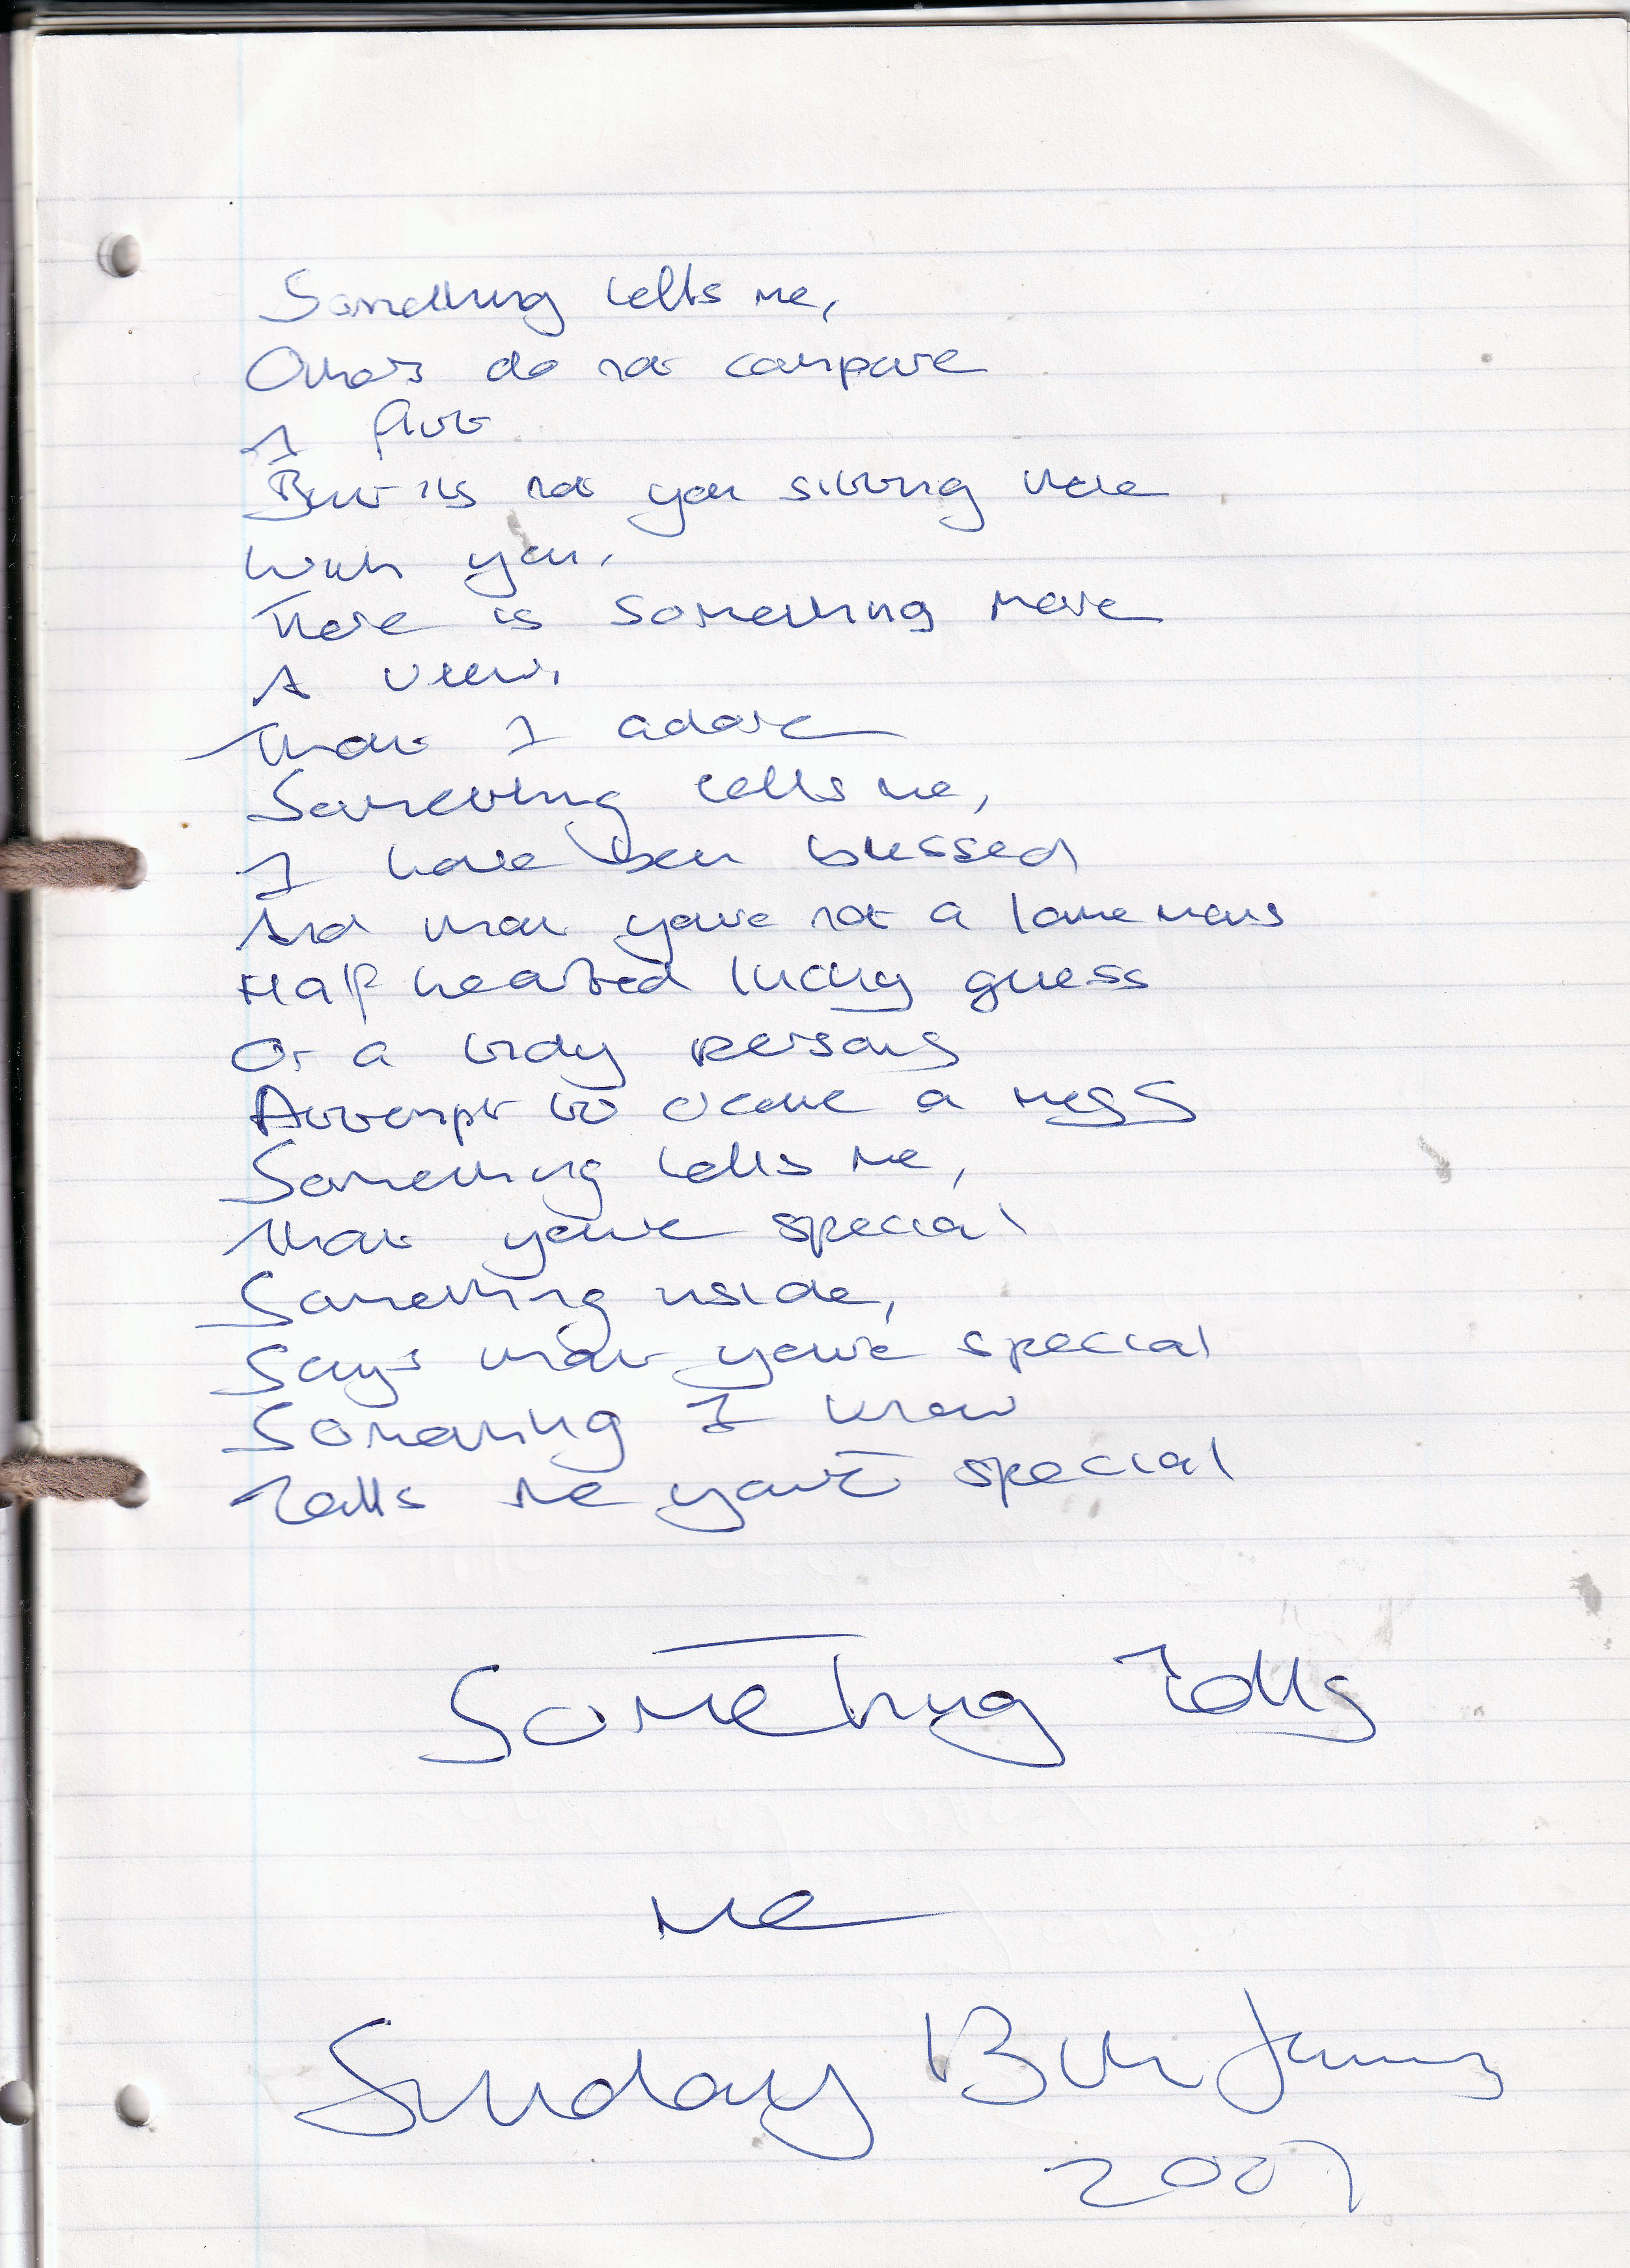 Something tells me,
Others do not compare
I flirt
But its not you sitting there
With you.
There is something more
A view,
That I adore
Something tells me,
I have been blessed
And that youre not a lame mans
Half hearted lucky guess
Or a tidy persons
Attempt to create a mess
Something tells me,
That youre special
Something inside,
Says that you're special
Something I know
Tells me you're special
Something Tells
me
Sunday 13th January
2007